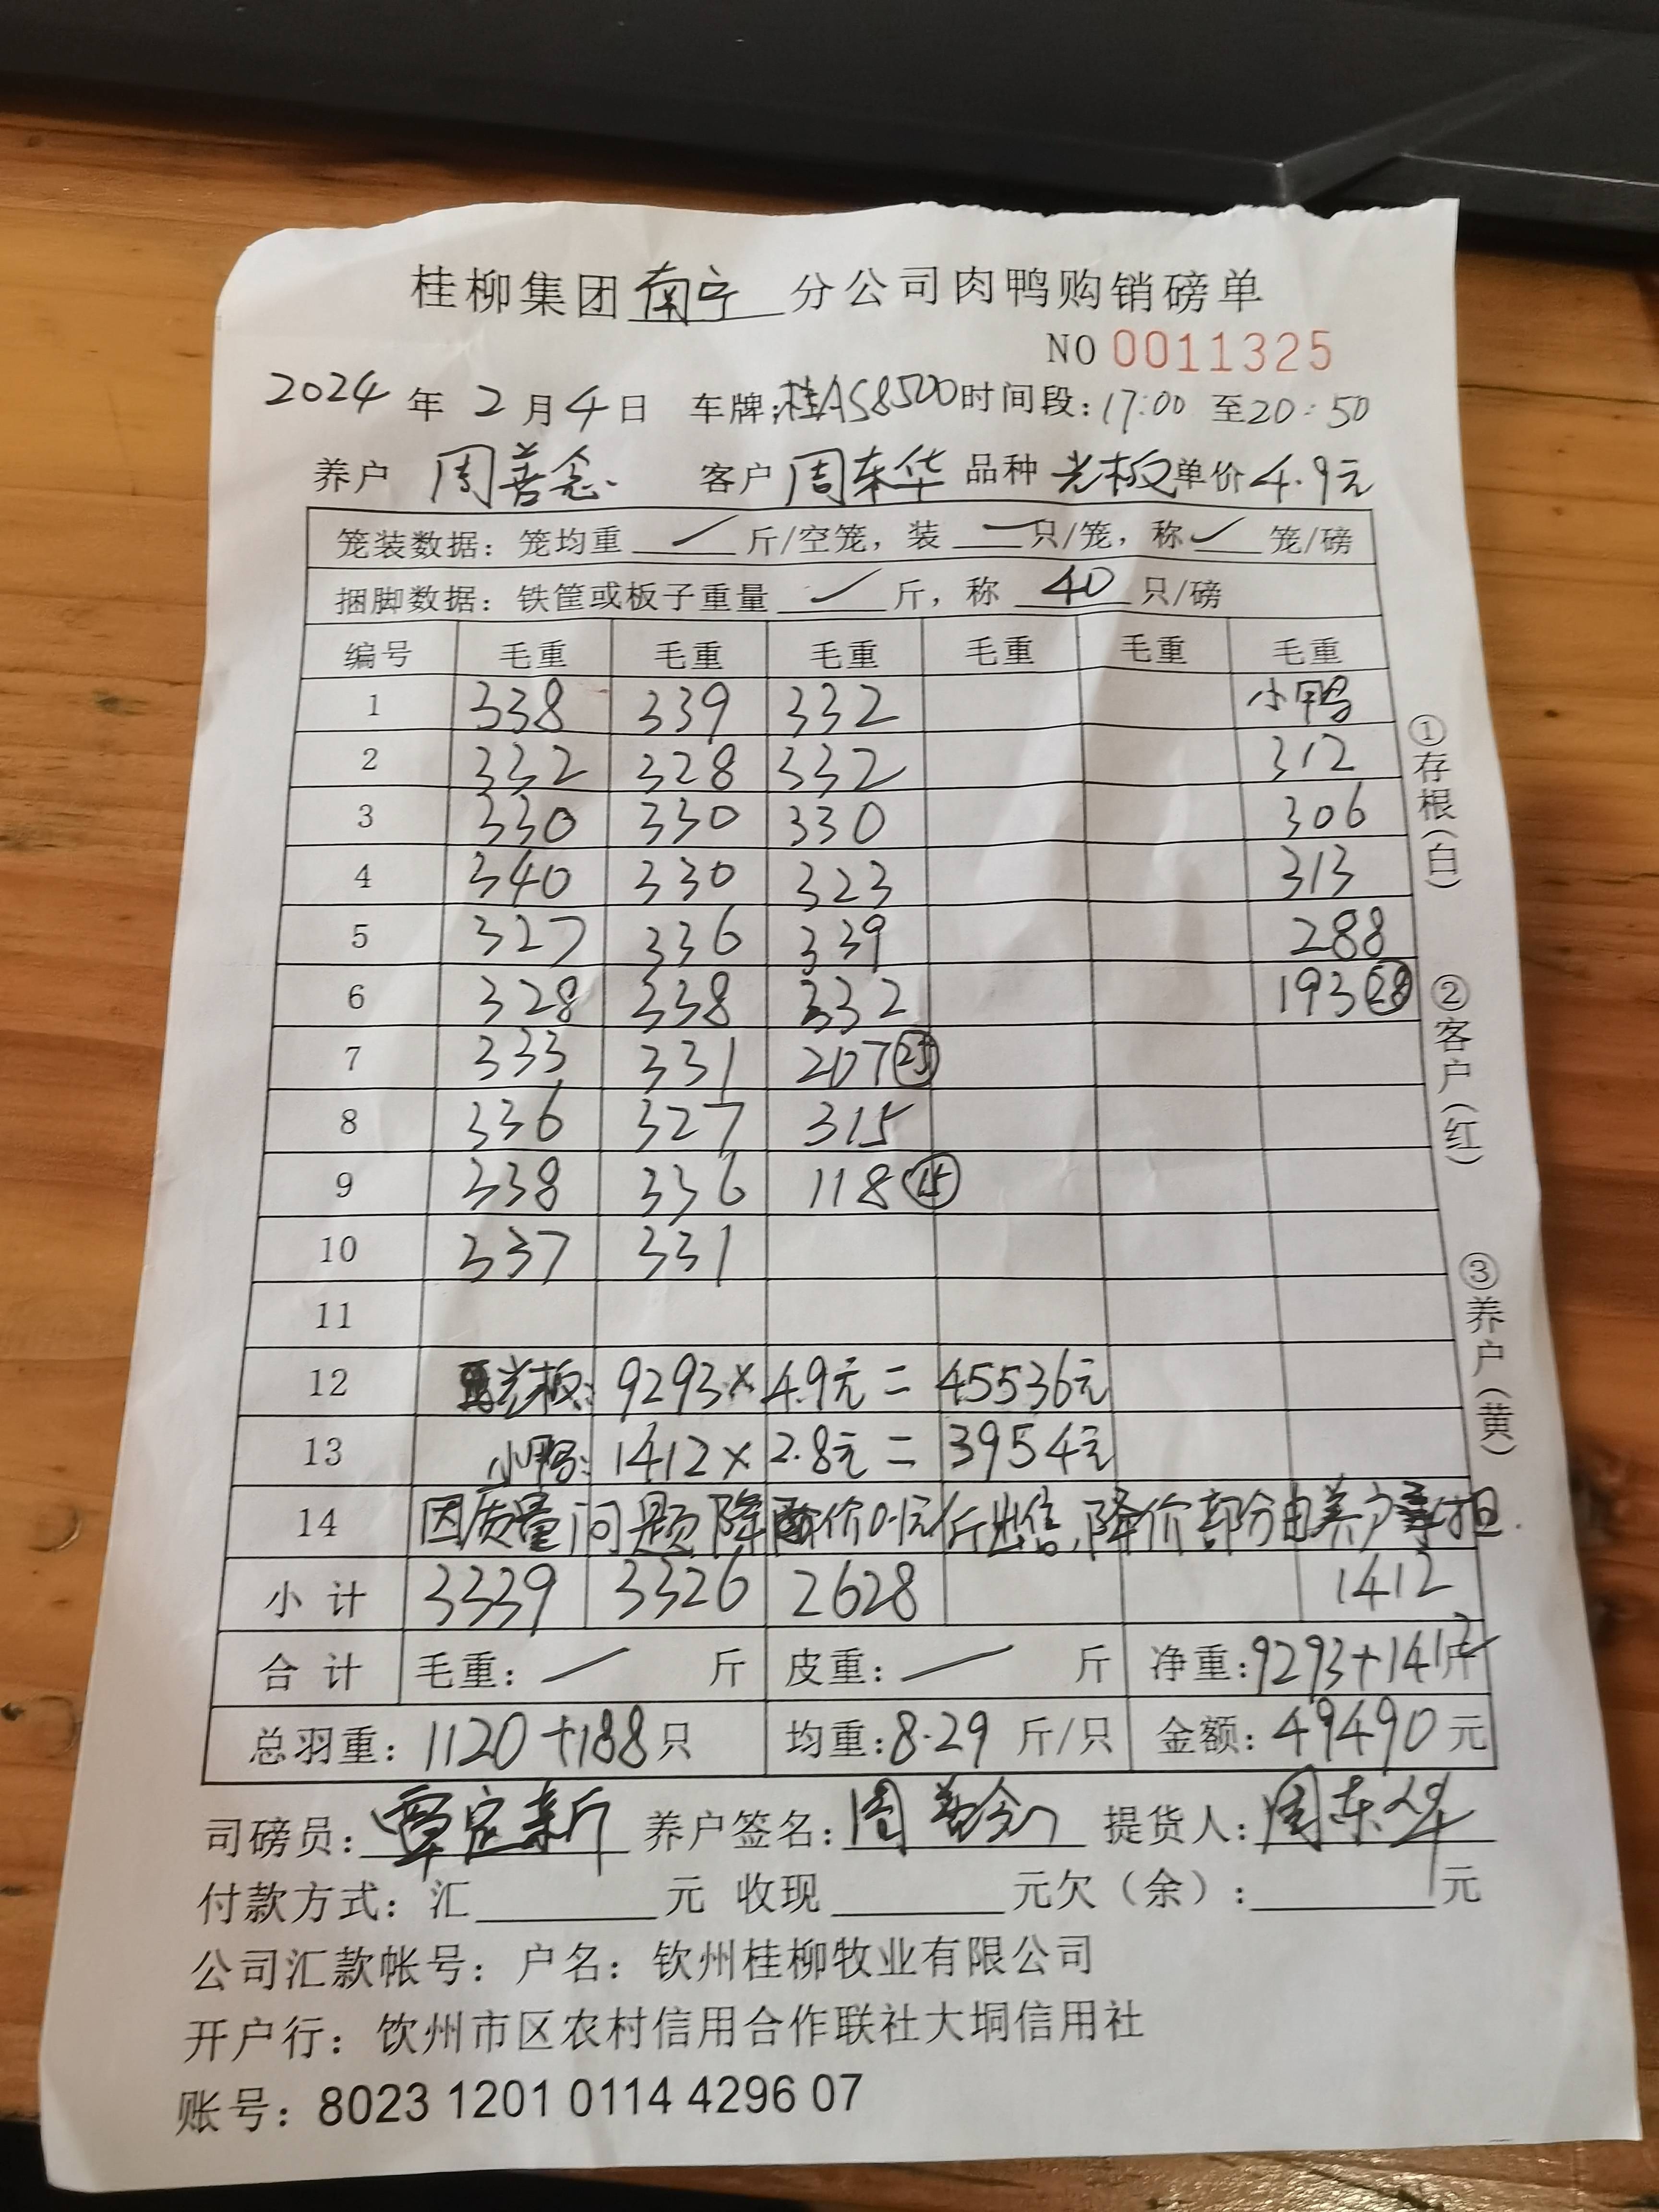 桂柳集团南宁分公司肉鸭购销磅单
NO 0011325
2024年2月4日 车牌:桂AS8500时间段:17:00至20:50
养户 周善念 客户 周东华 品种 光板 单价4.9元
笼装数据：笼均重 / 斤/空笼，装 一 只/笼，称 / 笼/磅
捆脚数据：铁筐或板子重量 / 斤，称 40 只/磅
编号 毛重 毛重 毛重 毛重 毛重 毛重
1 338 339 332 小鸭
2 332 328 332 312
3 330 330 330 306
4 340 330 323 313
5 327 336 339 288
6 328 338 332 193 28
7 333 331 207 25
8 336 327 315
9 338 336 118 15
10 337 331
11
12 光板: 9293×4.9元=45536元
13 小鸭: 1412×2.8元=3954元
14 因质量问题降价0.1元/斤出售,降价部分由养户承担.
小计 3339 3326 2628 1412
合计 毛重: / 斤 皮重: / 斤 净重:9293+1412斤
总羽重: 1120+188只 均重:8.29 斤/只 金额: 49490元
司磅员: 覃定新 养户签名: 周善念 提货人: 周东华
付款方式: 汇 元 收现 元欠（余）: 元
公司汇款帐号：户名：钦州桂柳牧业有限公司
开户行：饮州市区农村信用合作联社大垌信用社
账号：8023 1201 0114 4296 07
①存根(白)
②客户(红)
③养户(黄)